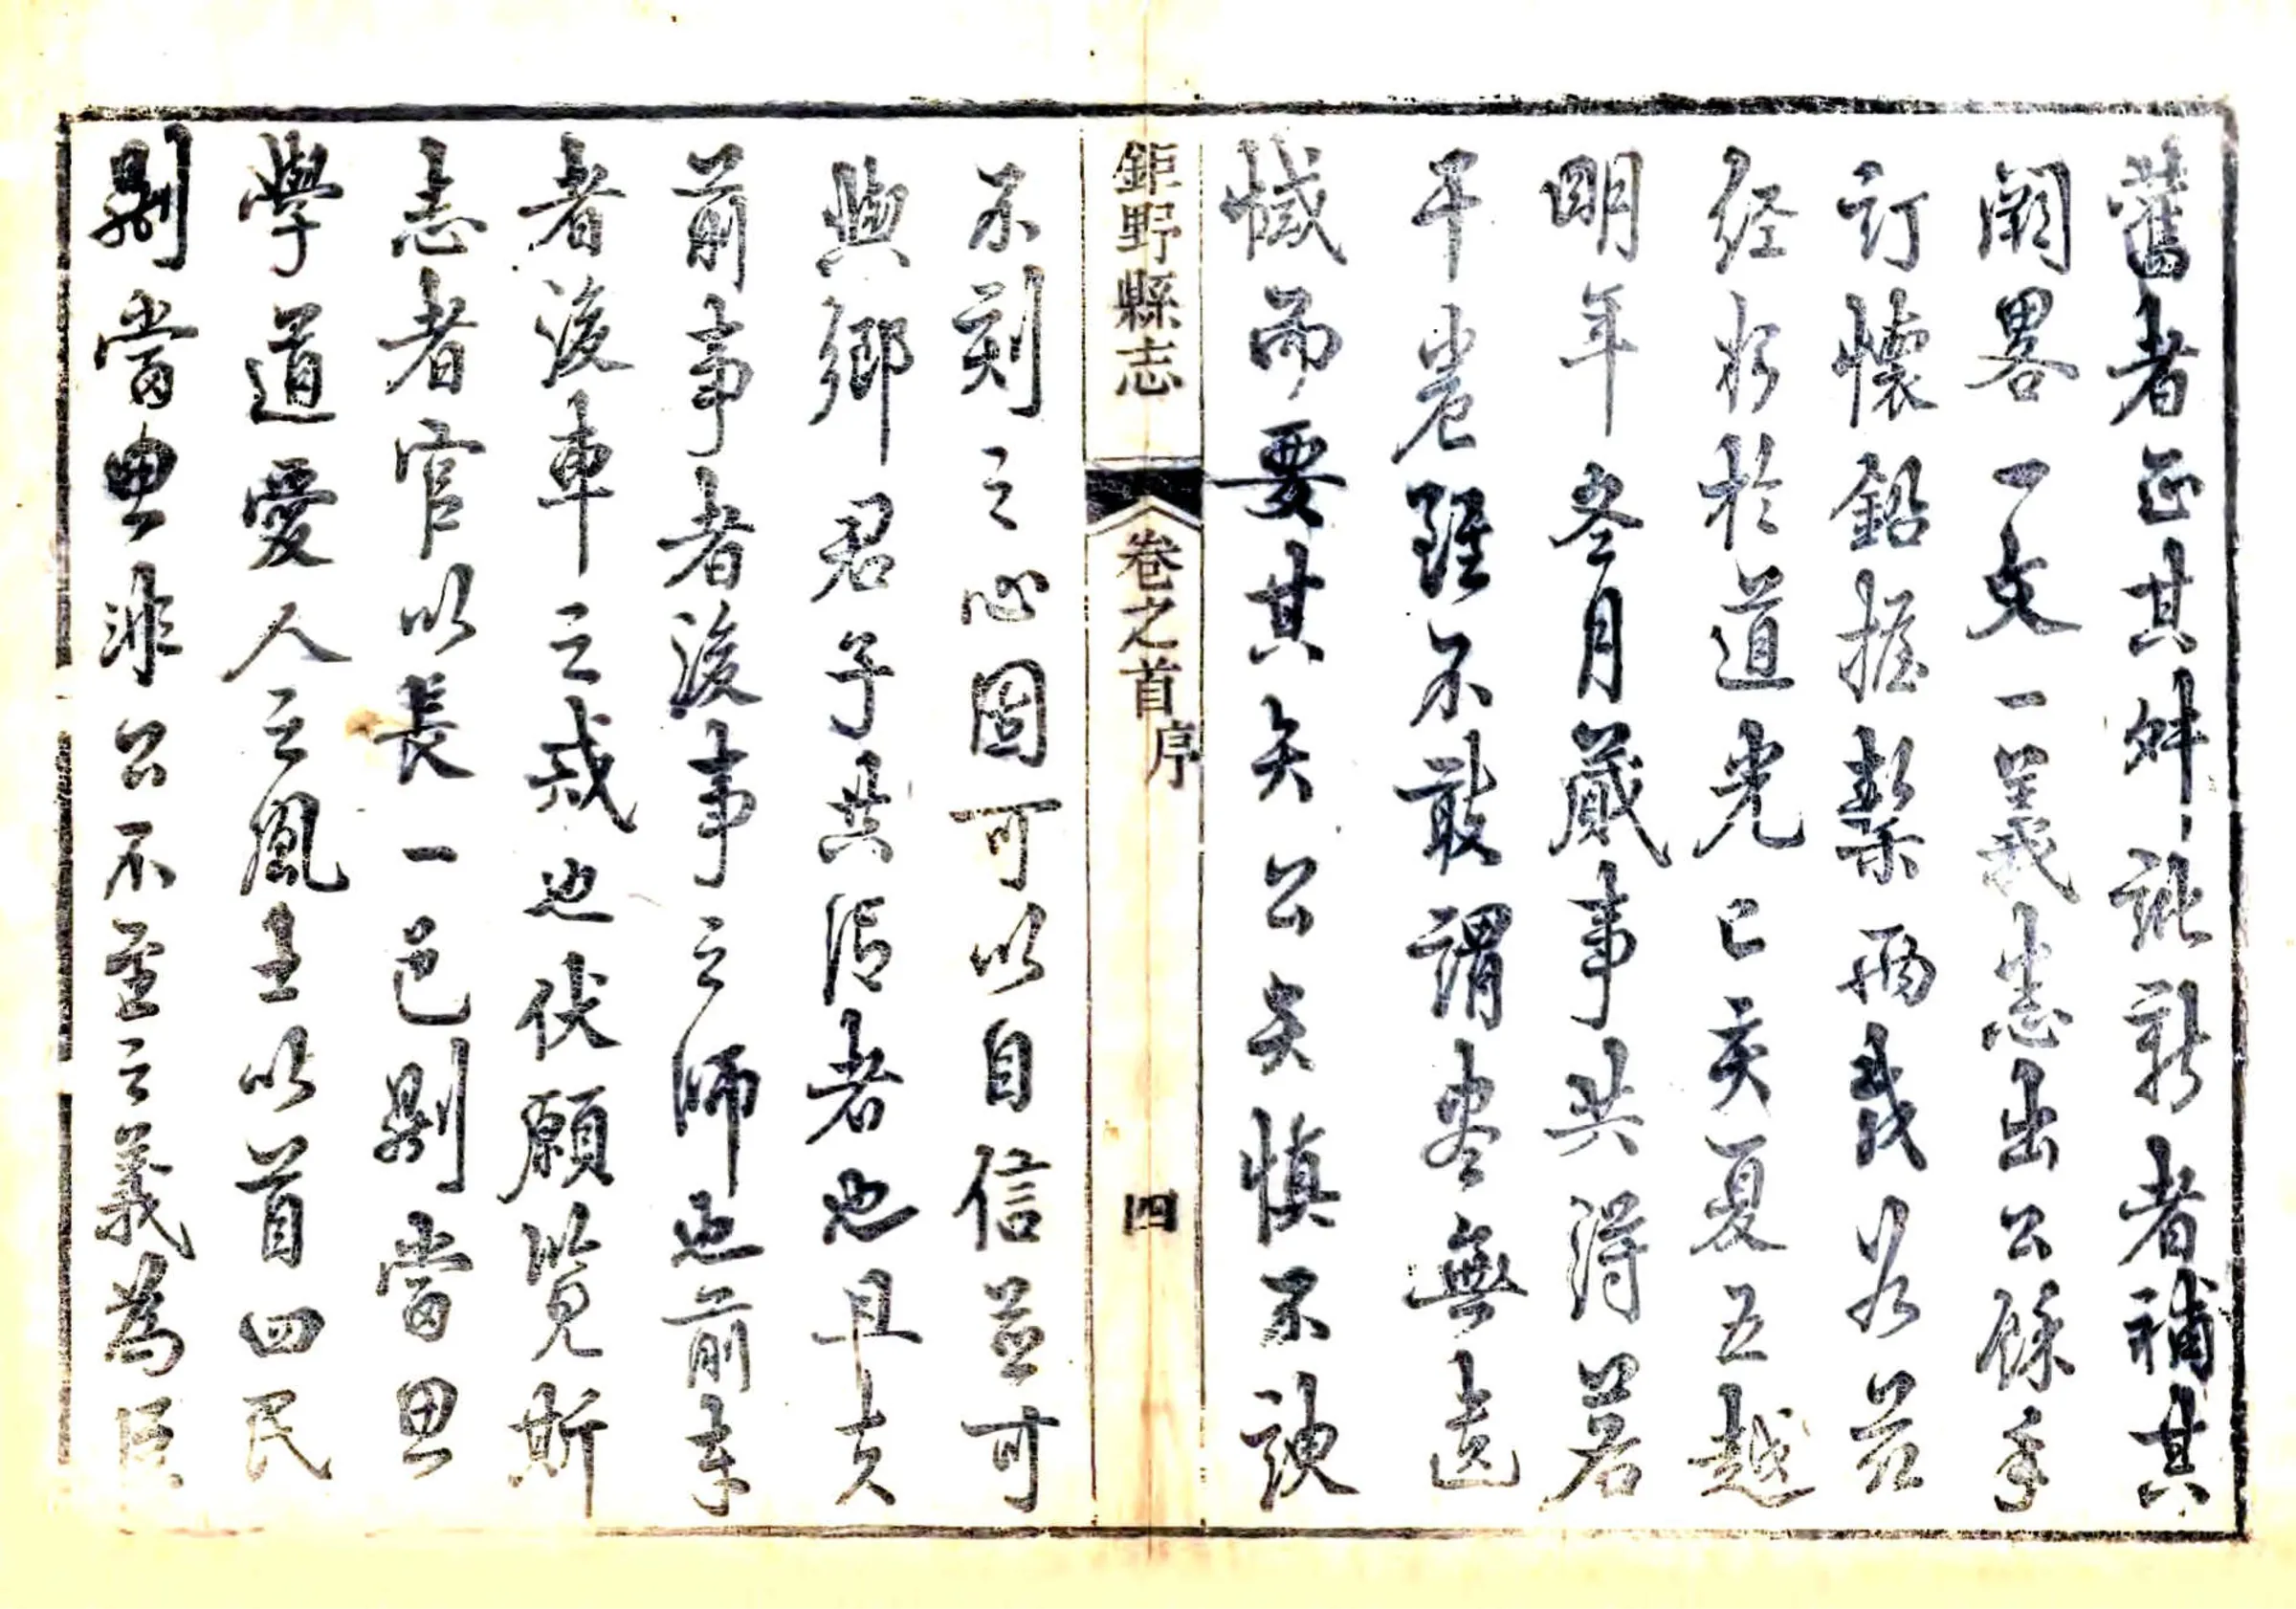 舊者正其舛訛新者補其
闕畧一文一義悉出公餘手
訂懷鉛握槧兩茲
经始於道光己亥夏五越
明年冬月蕆事共得若
干卷雖不敢謂盡無遺
憾而要其矢公矢慎不諛
鉅野縣志 卷之首 序 四
不刻之心固可以自信並可
與鄉君子共信者也且夫
前事者後事之師也前車
者後車之戒也伏願覽斯
志者官以長一邑則當思
學道愛人之風士以首四民
則當思非公不至之義為